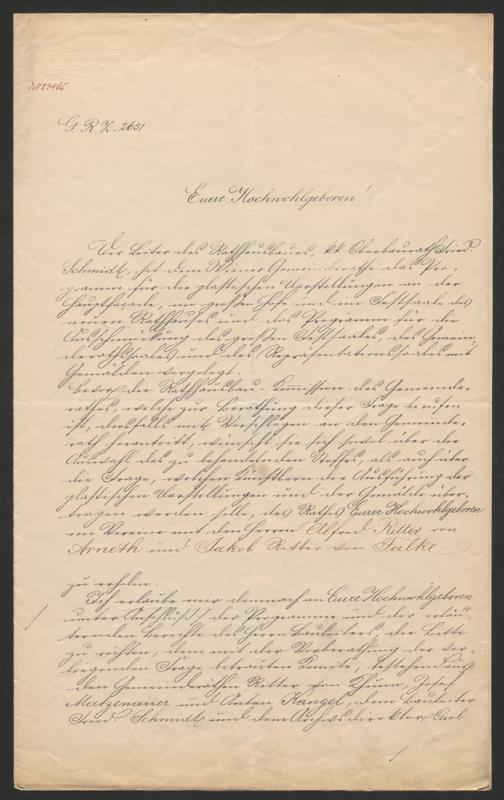 IN 23465
G. R. Z. 2651
Euere Hochwohlgeboren!
Der Leiter des Rathhausbaues, kk Oberbaurath Fried.
Schmidt, hat dem Wiener Gemeinderathe das Pro-
gramm für die plastischen Darstellungen an der
Hauptfaçade, im großen Hofe und im Festsaale des
neuen Rathhauses und das Programm für die
Ausschmückung des großen Festsaales, des Gemein-
derathssaales und des Repräsentationssaales mit
Gemälden vorgelegt.
Bevor die Rathhausbau-Kommission des Gemeinde-
rathes, welche zur Berathung dieser Frage berufen
ist, diesfalls mit Vorschlägen an den Gemeinde-
rath herantritt, wünscht sie sich sowol über die
Auswahl des zu behandelnden Stoffes, als auch über
die Frage, welchen Künstlern die Ausführung der
plastischen Darstellungen und der Gemälde über-
tragen werden solle, des Rathes Euerer Hochwohlgeboren
im Vereine mit den Herren Alfred Ritter von
Arneth und Jakob Ritter von Falke
zu erholen.
Ich erlaube mir demnach an Euere Hochwohlgeboren
unter Anschluß der Programme und der erläu-
ternden Berichte des Herrn Bauleiters, die Bitte
zu richten, dem mit der Vorberathung der vor-
liegenden Frage betrauten Komite, bestehend aus
den Gemeinderäthen Ritter von Khunn, Josef
Matzenauer und Anton Kangel, dem Bauleiter
Fried. Schmidt und dem Archivsdirektor Carl